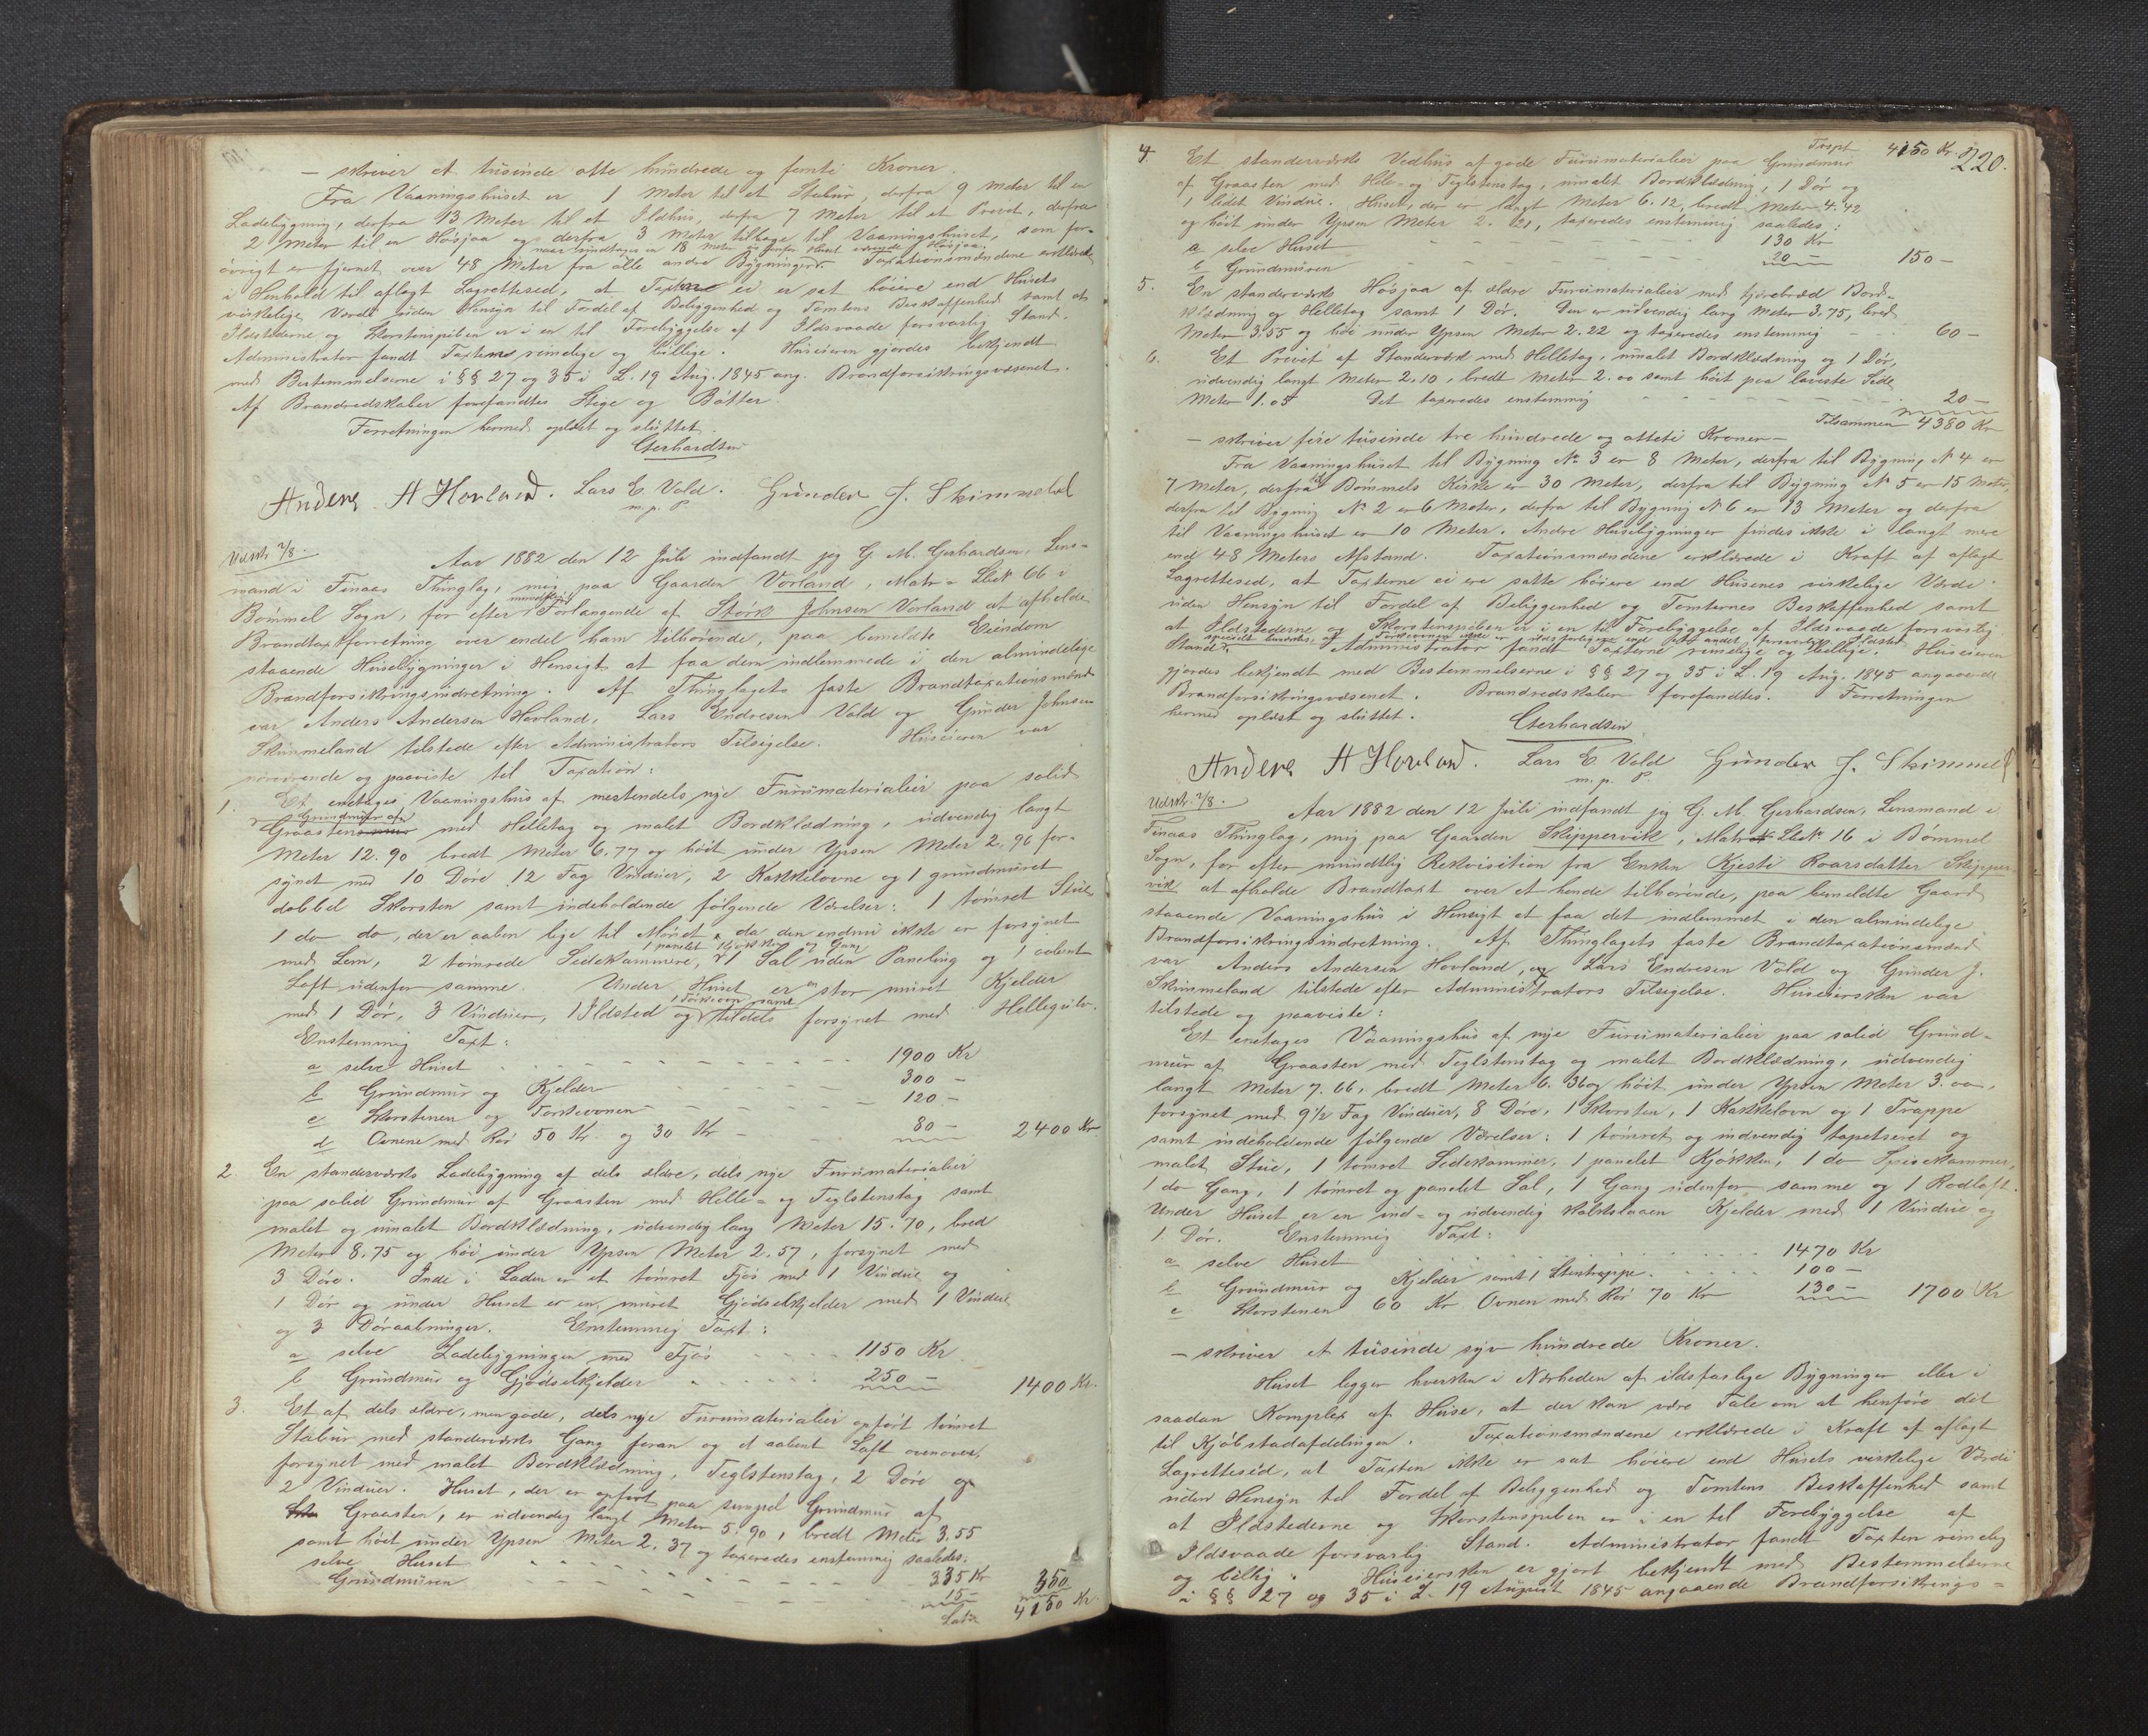 — skriver et tusinde otte hundrede og femti Kroner.
Fra Vaaningshuset er 1 Meter til et Stabur, derfra 9 Meter til en
Ladebygning, derfra 13 Meter til et Ildhus, derfra 7 Meter til et Privet, derfra
2 Meter til en Høsjaa og derfra 3 Meter tilbage til Vaaningshuset, som for-
naar undtages en 18 Meter Huset værende Høsjaa.
øvrigt er fjernet over 48 Meter fra alle andre Bygninger. Taxationsmændene erklærede
i Henhold til aflagt Lagrettesed, at Taxterne ei er sat høiere end Husets
virkelige Værdi uden Hensyn til Fordel af Beliggenhed og Tomtens Beskaffenhed samt at
Ildstederne og Skorstenspiben er i en til Forebyggelse af Ildsvaade forsvarlig Stand.
Administrator fandt Taxterne rimelige og billige. Huseieren gjordes bekjendt
med Bestemmelserne i §§ 27 og 35 i L. 19 Aug. 1845 ang. Brandforsikringsvæsenet.
Af Brandredskaber forefandtes Stege og Bøtter.
Forretningen hermed oplæst og sluttet.
Gerhardsen
Anders A Hovland. Lars E. Vold. Gunder J. Skimmeland
m. p. P.
Udskr. 2/8.
Aar 1882 den 12 Juli indfandt jeg G. M. Gerhardsen, Lens-
mand i Finaas Thinglag, mig paa Gaarden Vorland, Matr = Løbn 66 i
mundtlig
Bømmel Sogn, for efter Forlangende af Størk Johnsen Vorland at afholde
Brandtaxtforretning over endel ham tilhørende, paa bemeldte Eiendom
staaende Husebygninger i Hensigt at faa dem indlemmede i den almindelige
Brandforsikringsindretning. Af Thinglagets faste Brandtaxationsmænd
var Anders Andersen Hovland, Lars Endresen Vold og Gunder Johnsen
Skimmeland tilstede efter Administrators Tilsigelse. Huseieren var
nærværende og paaviste til Taxation:
1. Et enetages Vaaningshus af mestendels nye Furumaterialier paa solid
Grundmur af
Graasten med Helletag og malet Bordklædning, udvendig langt
Meter 12.90 bredt Meter 6.77 og høit under Ypsen Meter 2.96 for-
synet med 10 Døre 12 Fag Vinduer, 2 Kakkelovne og 1 grundmuret
dobbel Skorsten samt indeholdende følgende Værelser: 1 tømret Stue
1 do do, der er aaben lige til Mønet, da den endnu ikke er forsynet
1 panelet Kjøkken og Gang
med Lem, 2 tømrede Sidekammere, 1 Sal uden Paneling og 1 aabent
Loft udenfor samme. Under Huset er en stor muret Kjelder
1 Tørkeovn samt
med 1 Dør, 3 Vinduer, 1 Ildsted og tildels forsynet med Hellegulv.
Enstemmig Taxt:
a selve Huset 1900 Kr
b Grundmur og Kjelder 300 –
c Skorstenen og Tørkeovnen 120 –
d Ovnene med Rør 50 Kr og 30 Kr – 80 – 2400 Kr
2. En standerværks Ladebygning af dels ældre, dels nye Furumaterialier
paa solid Grundmur af Graasten med Helle- og Teglstenstag samt
malet og umalet Bordklædning, udvendig lang Meter 15.70, bred
Meter 8.75 og høi under Ypsen Meter 2.57, forsynet med
3 Døre. Inde i Laden er et tømret Fjøs med 1 Vindue og
1 Dør og under Huset er en muret Gjødselkjelder med 1 Vindue
og 3 Døraabninger. Enstemmig Taxt:
a selve Ladebygningen med Fjøs 1150 Kr
b Grundmur og Gjødselkjelder 250 – 1400 Kr.
3. Et af dels ældre, men gode, dels nye Furumaterialier opført tømret
Stabur med standerværks Gang foran og et aabent Loft ovenover,
forsynet med malet Bordklædning, Teglstenstag, 2 Døre og
2 Vinduer. Huset, der er opført paa simpel Grundmur af
Graasten, er udvendig langt Meter 5.90, bredt Meter 3.55
samt høit under Ypsen Meter 2.37 og taxeredes enstemmig saaledes:
selve Huset 335 Kr
Grundmuren 15 – 350
Latr 4150 Kr.
220.
Trspt 4150 Kr.
4. Et standerværks Vedhus af gode Furumaterialier paa Grundmur
af Graasten med Helle- og Teglstenstag, umalet Bordklædning, 1 Dør og
1 lidet Vindue. Huset, der er langt Meter 6.12, bredt Meter 4.42
og høit under Ypsen Meter 2.21, taxeredes enstemmig saaledes:
a selve Huset 130 Kr
b Grundmuren 20 – 150 –
5. En standerværks Høsjaa af ældre Furumaterialier med tjærebræd Bord-
klædning og Helletag samt 1 Dør. Den er udvendig lang Meter 3.75, bred
Meter 3.55 og høi under Ypsen Meter 2.22 og taxeredes enstemmig 60 –
6. Et Privet af Standerværk med Helletag, umalet Bordklædning og 1 Dør,
udvendig langt Meter 2.10, bredt Meter 2.00 samt høit paa laveste Side
Meter 1.05 Det taxeredes enstemmig 20 –
Tilsammen 4380 Kr
— skriver fire tusinde tre hundrede og otteti Kroner —
Fra Vaaningshuset til Bygning No 3 er 8 Meter, derfra til Bygning No 4 er
7 Meter, derfra til Bømmels Kirke er 30 Meter, derfra til Bygning No 5 er 15 Meter,
derfra til Bygning No 2 er 6 Meter, derfra til Bygning No 6 er 13 Meter og derfra
til Vaaningshuset er 10 Meter. Andre Husebygninger findes ikke i langt mere
end 48 Meters Afstand. Taxationsmændene erklærede i Kraft af aflagt
Lagrettesed, at Taxterne ei ere satte høiere end Husenes virkelige Værdi
uden Hensyn til Fordel af Beliggenhed og Tomternes Beskaffenhed samt
at Ildstederne og Skorstenspiben er i en til Forebyggelse af Ildsvaade forsvarlig
Tørkeovnen ikke er ildsfarligere end et andet forsvarligt Ildsted
Stand. Administrator fandt Taxterne rimelige og billige. Huseieren
gjordes bekjendt med Bestemmelserne i §§ 27 og 35 i L. 19 Aug. 1845 angaaende
Brandforsikringsvæsenet. Brandredskaber forefandtes. Forretningen
hermed oplæst og sluttet.
Gerhardsen
Anders A Hovland. Lars E Vold Gunder J. Skimmel
m. p. P.
Udskr. 2/8.
Aar 1882 den 12 Juli indfandt jeg G. M. Gerhardsen, Lensmand i
Finaas Thinglag, mig paa Gaarden Skippervik, Matr Løbn 16 i Bømmel
Sogn, for efter mundtlig Rekvisition fra Enken Kjesti Roarsdatter Skipper-
vik at afholde Brandtaxt over et hende tilhørende, paa bemeldte Gaard
staaende Vaaningshus i Hensigt at faa det indlemmet i den almindelige
Brandforsikringsindretning. Af Thinglagets faste Brandtaxationsmænd
var Anders Andersen Hovland, Lars Endresen Vold og Gunder J.
Skimmeland tilstede efter Administrators Tilsigelse. Huseiersken var
tilstede og paaviste:
Et enetages Vaaningshus af nye Furumaterialier paa solid Grund-
mur af Graasten med Teglstenstag og malet Bordklædning, udvendig
langt Meter 7.66, bredt Meter 6.36 og høit under Ypsen Meter 3.00,
forsynet med 9½ Fag Vinduer, 8 Døre, 1 Skorsten, 1 Kakkelovn og 1 Trappe
samt indeholdende følgende Værelser: 1 tømret og indvendig tapetseret og
malet Stue, 1 tømret Sidekammer, 1 panelet Kjøkken, 1 do Spisekammer,
1 do Gang, 1 tømret og panelet Sal, 1 Gang udenfor samme og 1 Rodloft.
Under Huset er en ind- og udvendig kalkslaaen Kjelder med 1 Vindue og
1 Dør. Enstemmig Taxt:
a selve Huset 1470 Kr
b Grundmur og Kjelder samt 1 Stentrappe 100 –
c Skorstenen 60 Kr Ovnen med Rør 70 Kr 130 – 1700 Kr
— skriver et tusinde syv hundrede Kroner.
Huset ligger hverken i Nærheden af ildsfarlige Bygninger eller i
saadan Komplex af Huse, at der kan være Tale om at henføre det
til Kjøbstadafdelingen. Taxationsmændene erklærede i Kraft af aflagt
Lagrettesed, at Taxten ikke er sat høiere end Husets virkelige Værdi
uden Hensyn til Fordel af Beliggenhed og Tomtens Beskaffenhed samt
at Ildstederne og Skorstenspiben er i en til Forebyggelse af
Ildsvaade forsvarlig Stand. Administrator fandt Taxten rimelig
og billig. Huseiersken er gjort bekjendt med Bestemmelserne
i §§ 27 og 35 i L. 19 August 1845 angaaende Brandforsikrings-